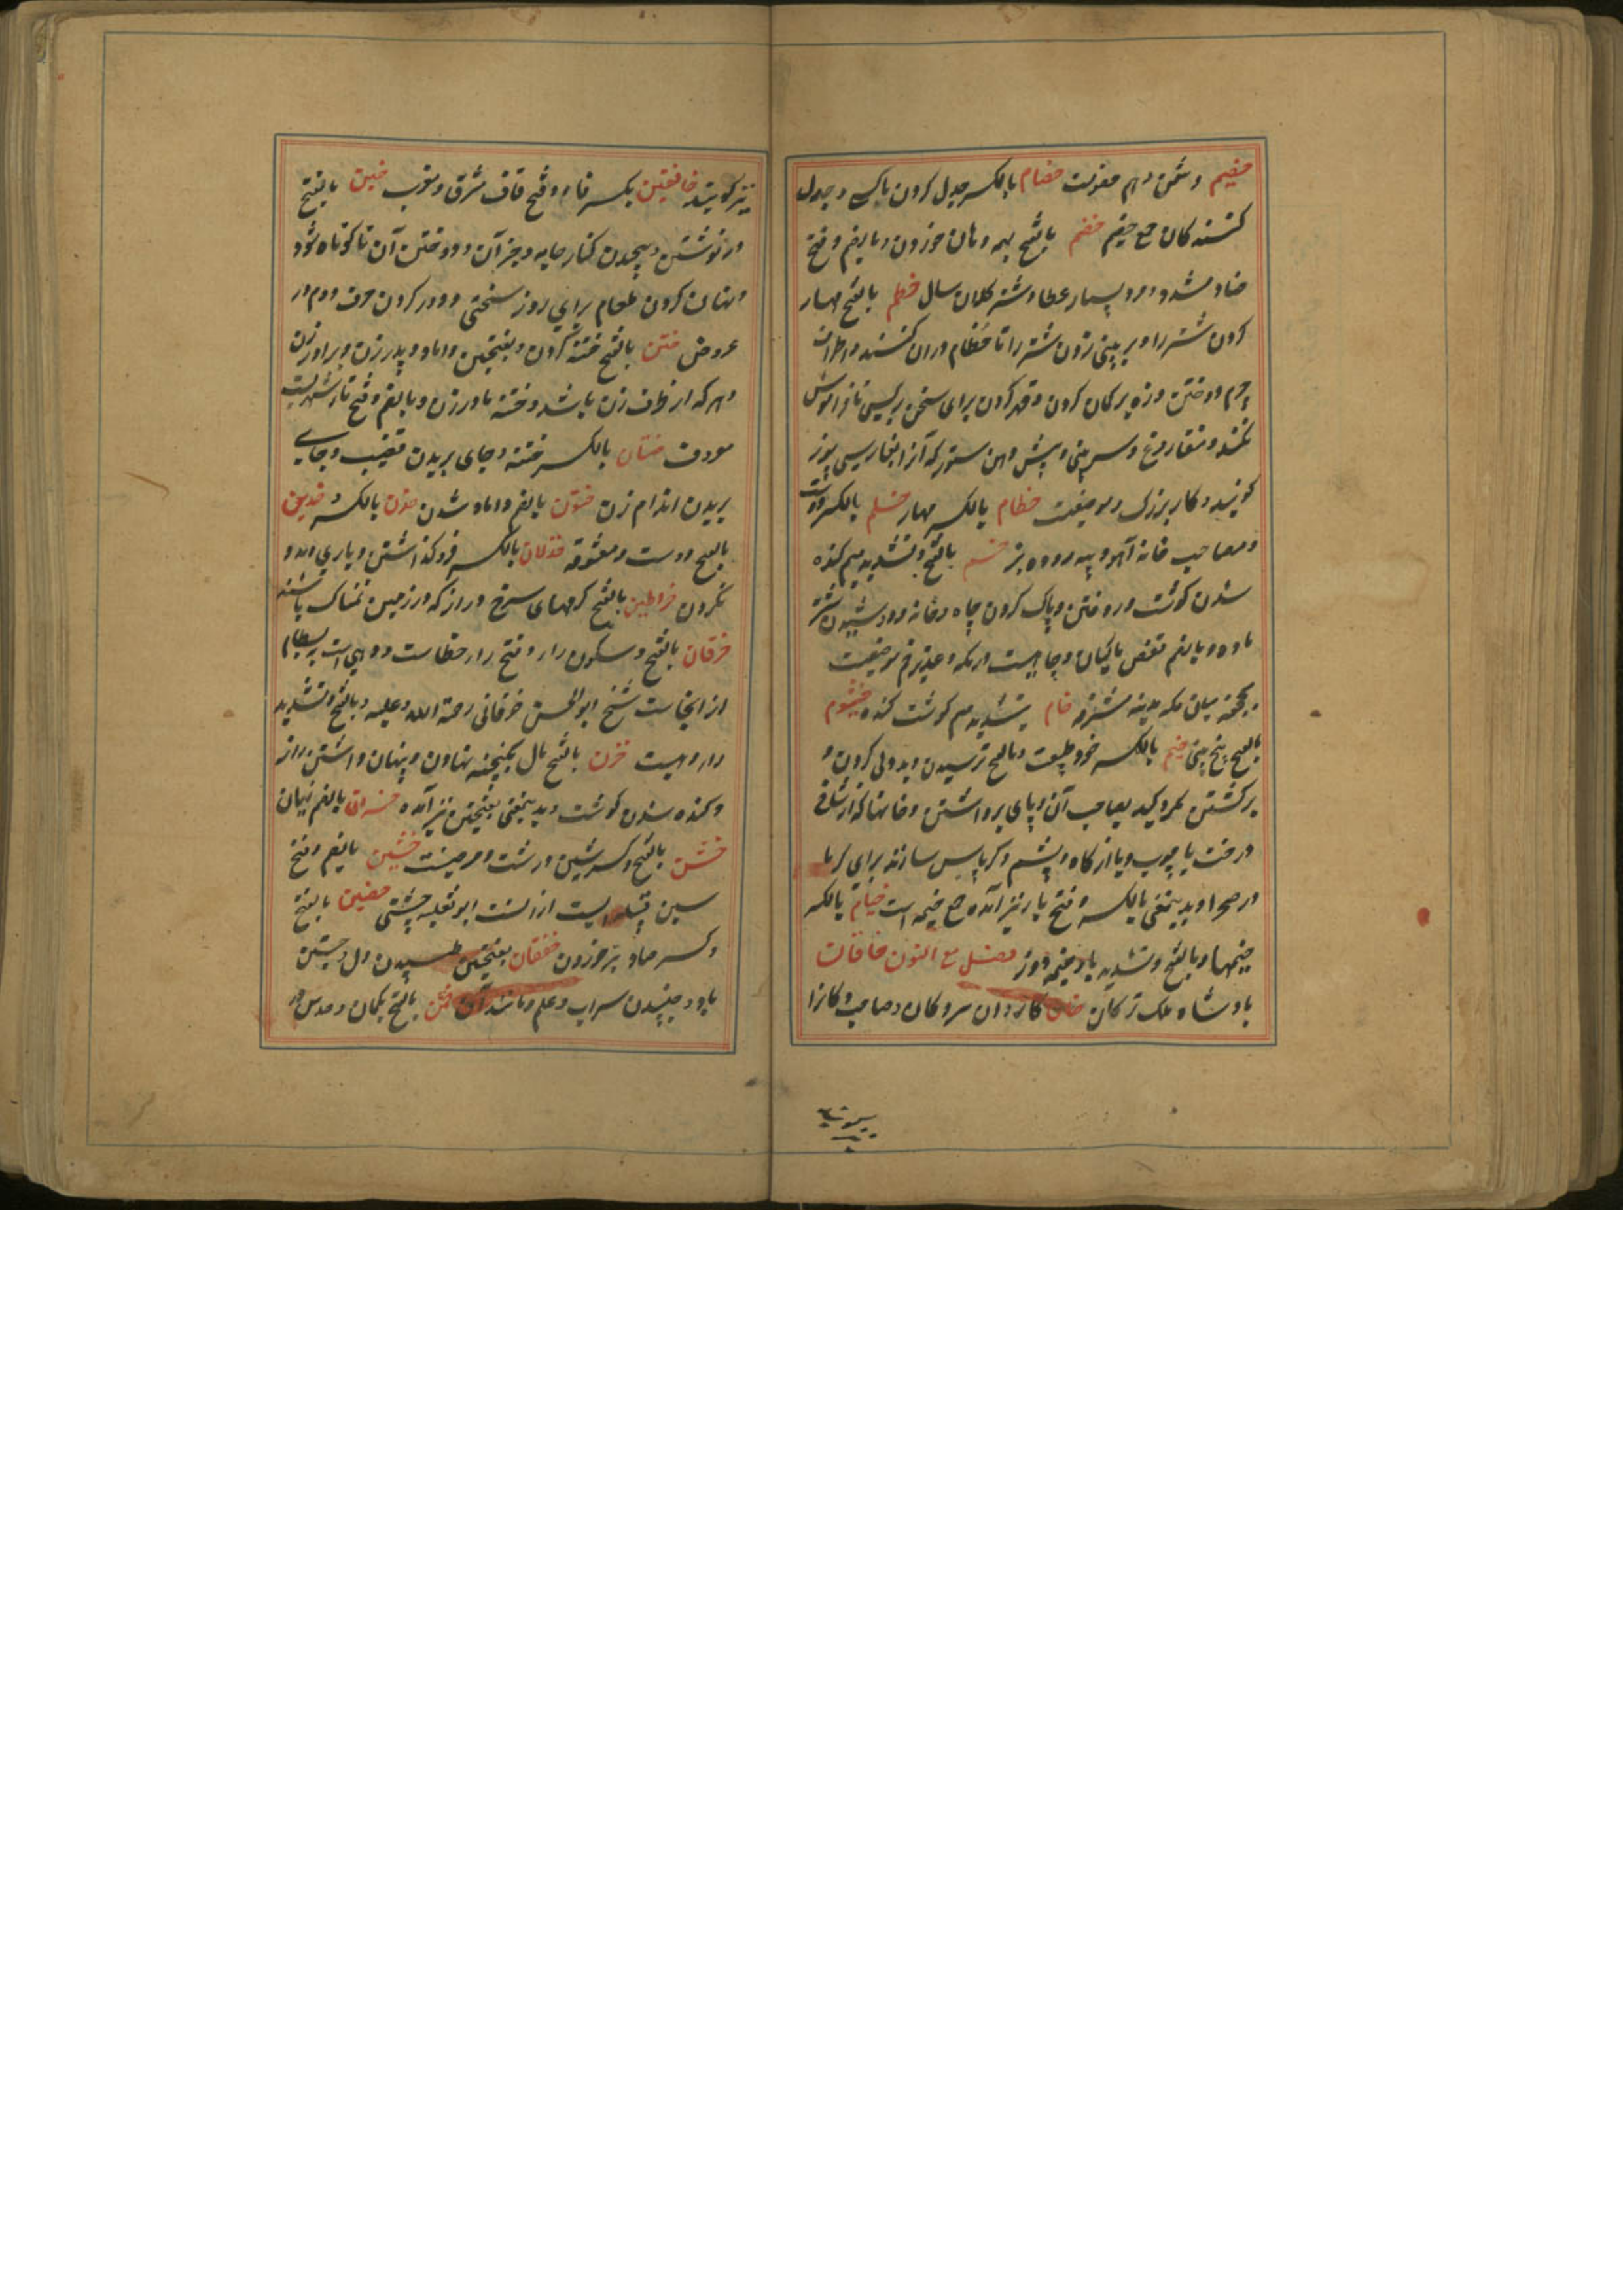 خصیم دشمن و هم معونت خصام بالکسر جدل کردن باکسی و جدل
کنندکان جمع خصیم خضم بالفتح بهمه دهان خوردن و بالضم و فتح
ضاد مشدد مرد بسیار عطا و شتر کلان سال خطم بالفتح مهار
کردن شتر را و بر بینی زدن شتر را تا خطام دران کنند و اطراف
چرم دوختن و زه بر کمان کردن و قهر کردن برای سخن بر کسی تا فراموش
نکند و منقار مرغ و سر بینی و پیش دهن ستور که آنرا بفارسی پوز
کویند و کار بزرک و موضعیست خطام بالکسر مهار خلم بالکسر دوست
و مصاحب خانه آهو و پیه روده بز خم بالفتح و تشدید میم کنده
شدن کوشت و روفتن و پاک کردن چاه و خانه و دوشیدن شتر
ماده و بالضم قفص ماکیان و چاهیست در مکه و غدیر خم موضعیست
بجحفه میان مکه و مدینه مشرفه خام بتشدید میم کوشت کنده خیشوم
بالفتح بیخ بینی خیم بالکسر خو و طبیعت و بالفتح ترسیدن و بددلی کردن و
برکشتن مکر و کید بصاحب آن و پای برداشتن و خانها که از شاخ
درخت یا چوب و یا از کاه و پشم و کرباس سازند برای کرما
در صحرا و بدینمعنی بالکسر و فتح یا نیز آمده جمع خیمه است خیام بالکسر
خیمها و بالفتح و تشدید یا خیمه دوز فصل مع النون خاقان
بادشاه ملک ترکان خان کاروان سرو کان و صاحب و کانرا
نیز کویند خافقین بکسر فا و فتح قاف مشرق و مغرب خبن بالفتح
در نوشتن و پیچیدن کنار جامه و جز آن و دوختن آن تا کوتاه شود
و نهان کردن طعام برای روز سختی و دور کردن حرف دوم در
عروض ختن بالفتح ختنه کردن و بفتحتین داماد و پدر زن و برادر زن
و هر که از طرف زن باشد و ختنه مادر زن و بالضم و فتح تا شهریست
معروف ختان بالکسر ختنه و جای بریدن قضیب و جای
بریدن اندام زن ختون بالضم داماد شدن خدن بالکسر و خدین
بالفتح دوست و معشوقه خذلان بالکسر فروکذاشتن و یاری و مدد
نکردن خراطین بالفتح کرمهای سرخ دراز که در زمین نمناک باشند
خرقان بالفتح و سکون را و فتح را خطاست و دهی است ببسطام
از انجاست شیخ ابوالحسن خرقانی رحمة الله علیه و بالفتح و تشدید
را دهیست خزن بالفتح مال بکنجینه نهادن و پنهان داشتن راز
و کنده شدن کوشت و بدینمعنی بفتحتین نیز آمده خسران بالضم زیان
خشن بالفتح و کسر شین درشت و مرد خشین بالضم و فتح
سین قبیله ایست ازانست ابو ثعلبه خشنی خصین بالفتح
و کسر صاد تبر خورد خفقان بفتحتین طپیدن دل و جستن
باد و جنبیدن سراب و علم و مانند آن خمن بالفتح بکمان و حدس در